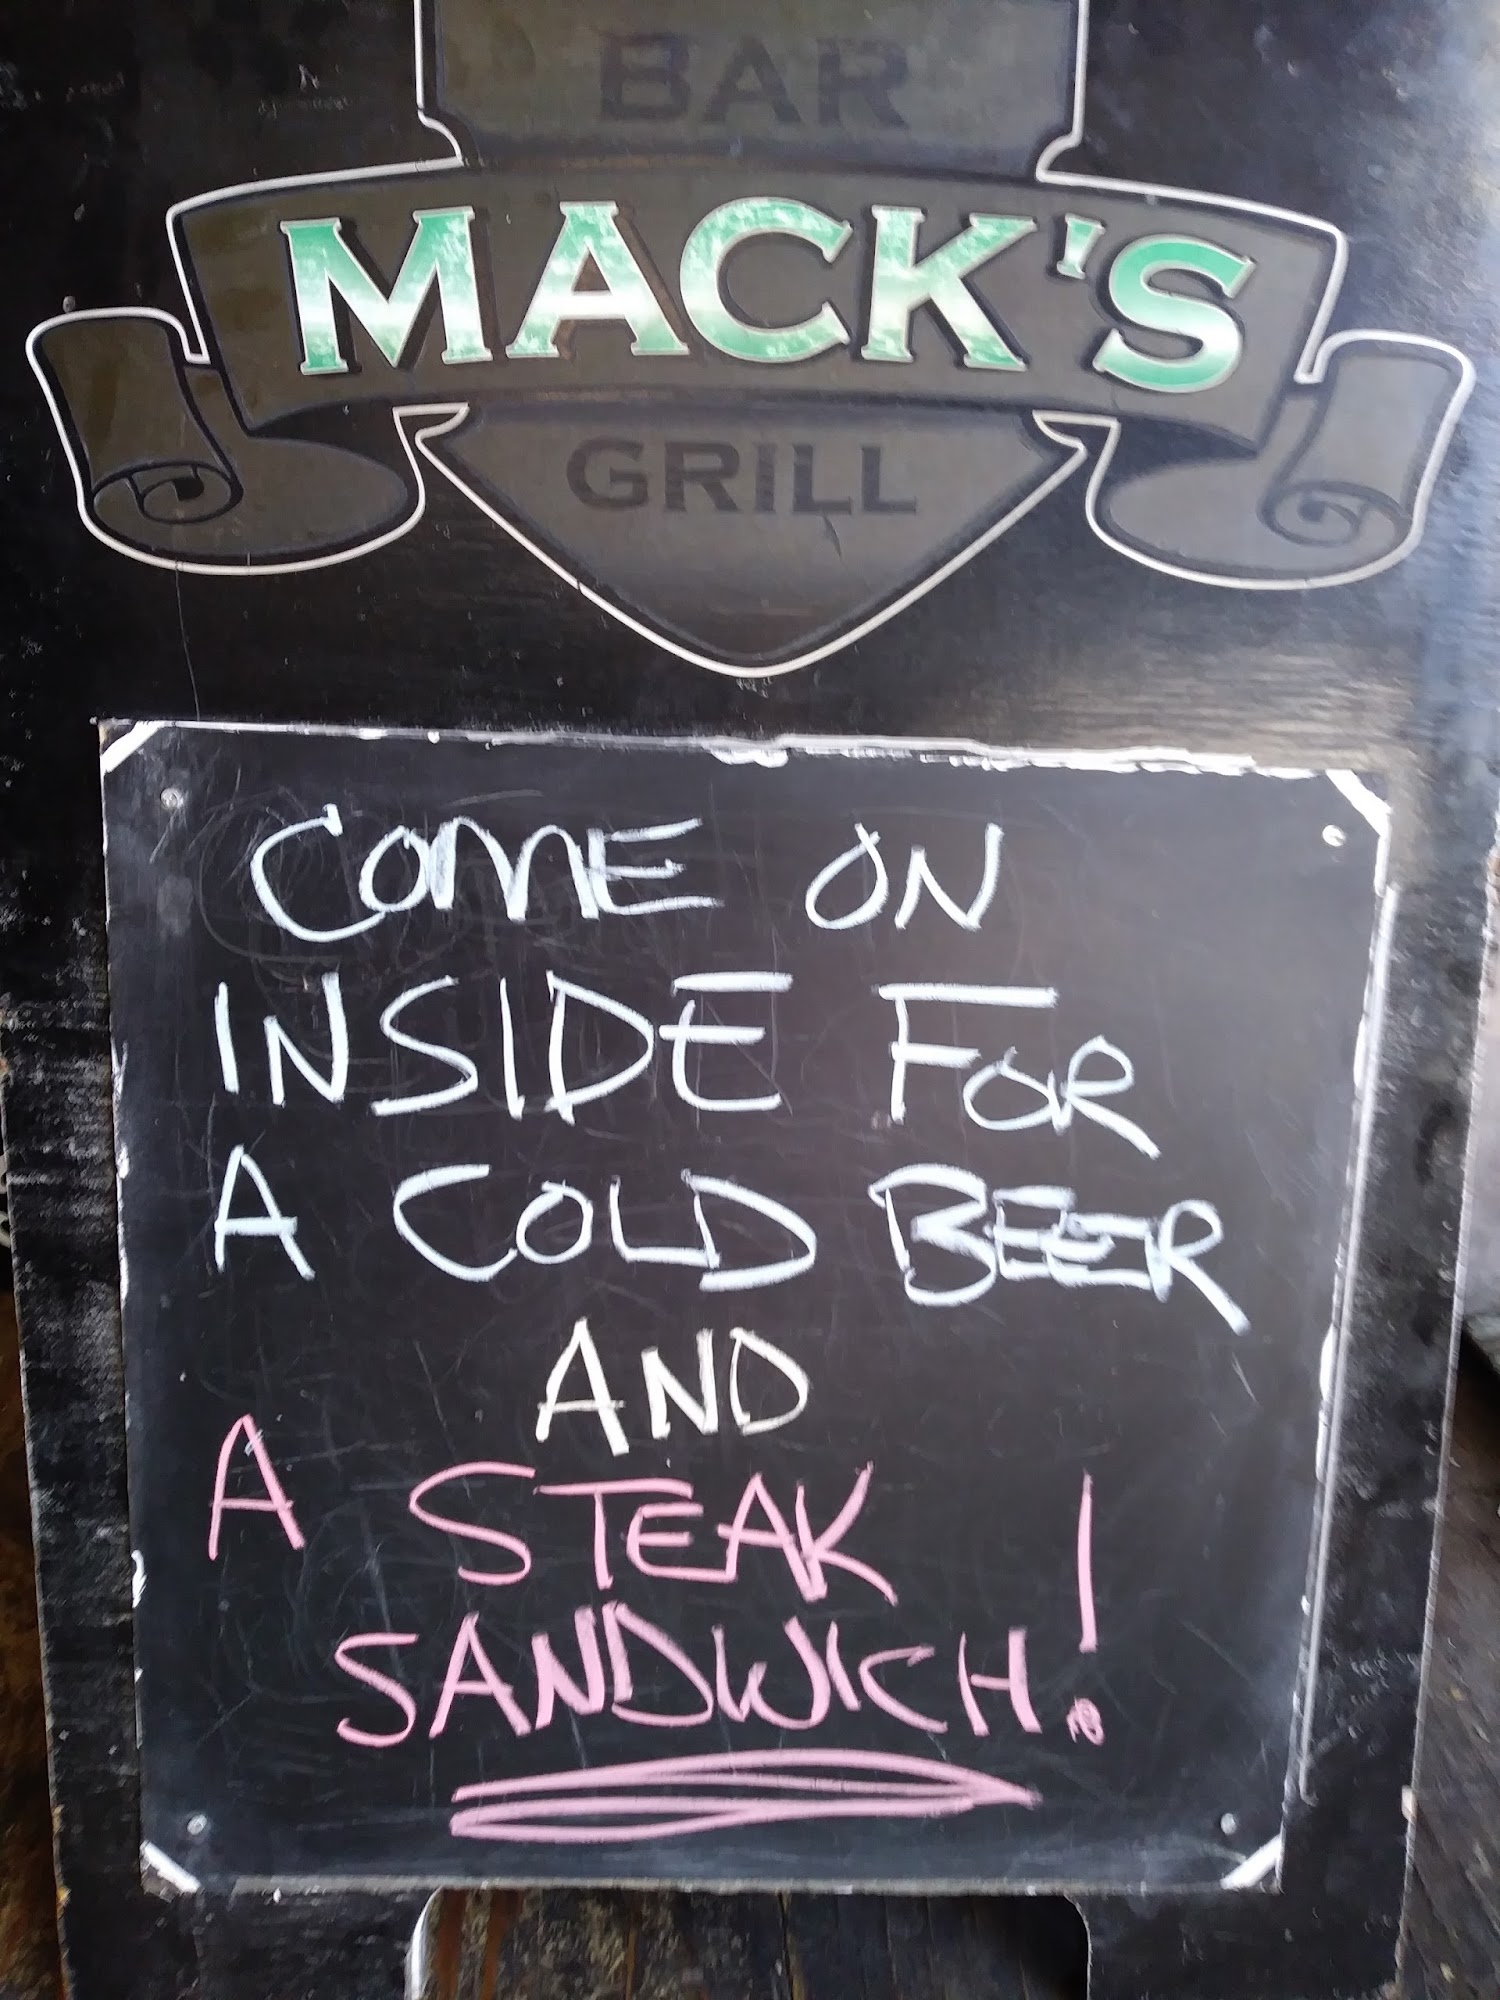 BAR
MACK'S
GRILL
COME ON
INSIDE FOR
A COLD BEER
AND
A STEAK
SANDWICH!